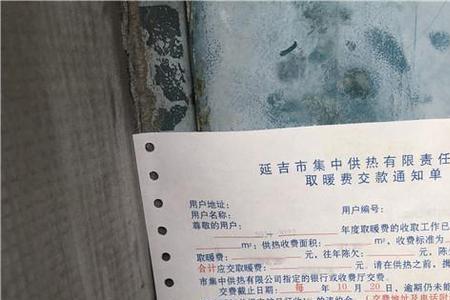 延吉市集中供热有限责任
取暖费交款通知单
用户地址:
用户名称: 用户编号:
尊敬的用户:
年度取暖费的收取工作已
m²; 供热收费面积: m², 收费标准为
取暖费: 元, 往年陈欠: 元, 陈
合计应交取暖费: 元. 请在供热之前,
市集中供热有限公司指定的银行或收费厅交费.
交费截止日期: 每 年 10 月 20 日, 逾期仍未能
(交费地址及电话附